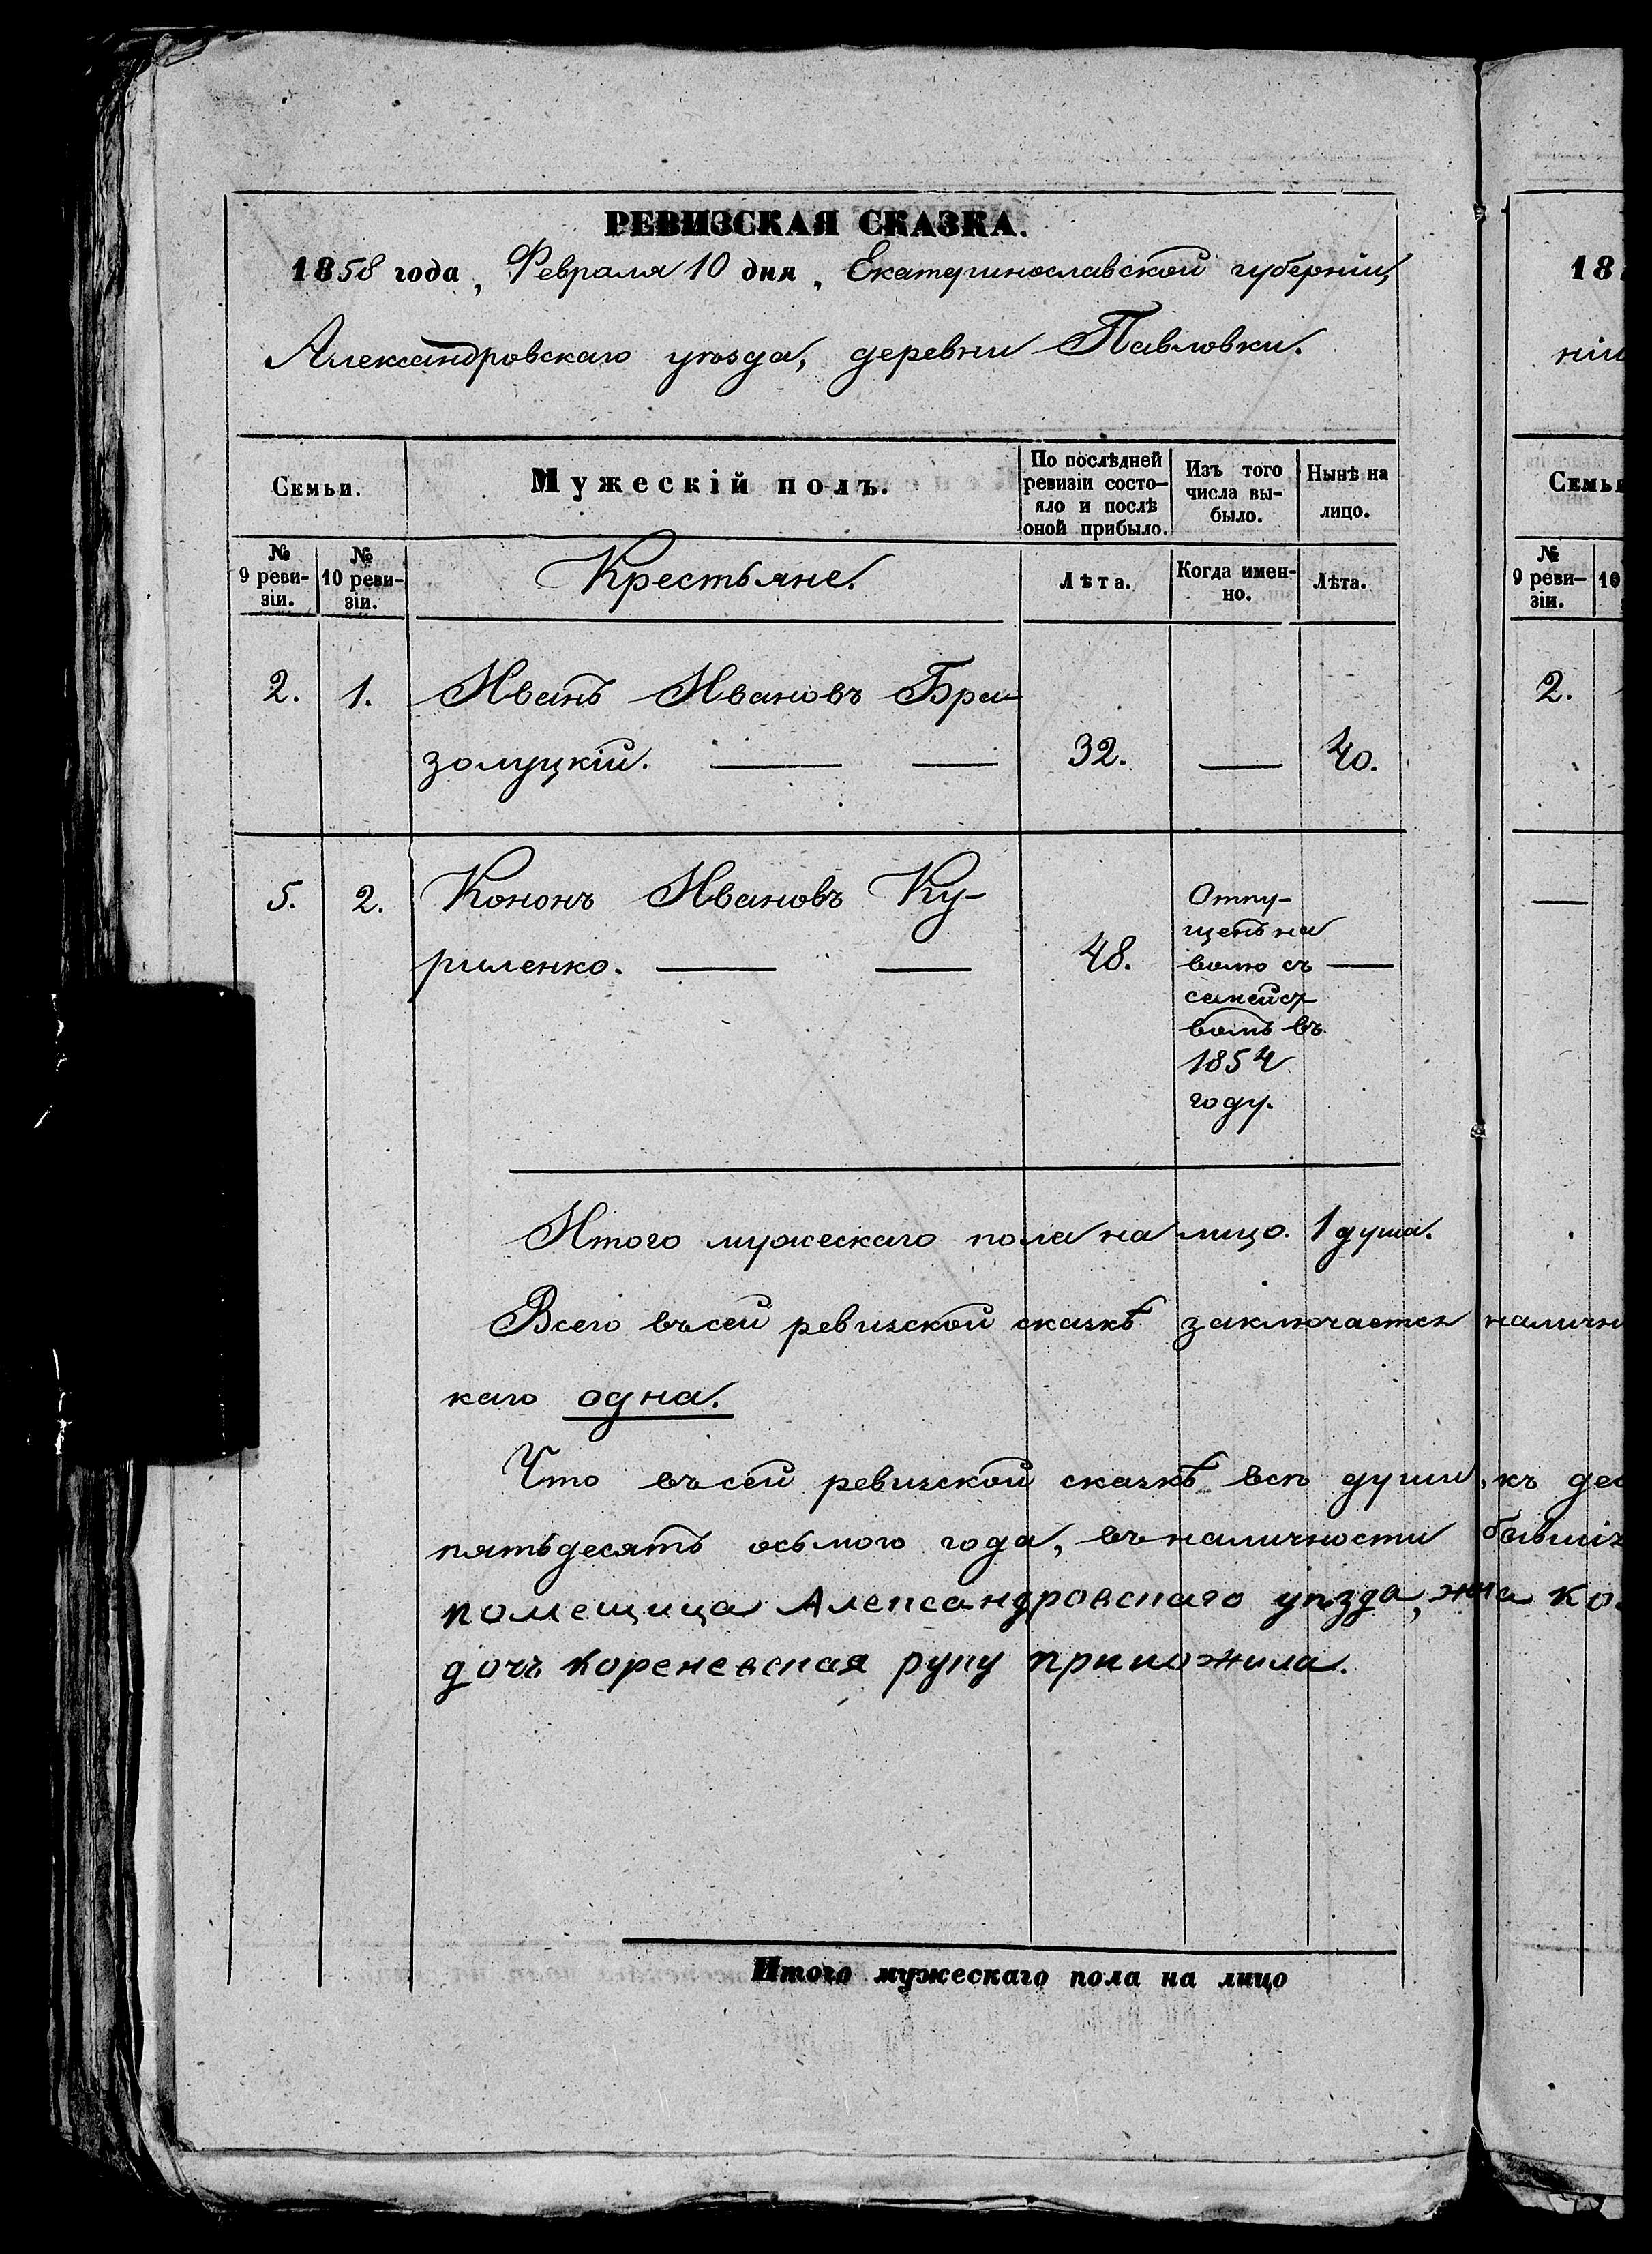 РЕВИЗСКАЯ СКАЗКА.
1858 года, Февраля 10 дня, Екатеринославской губерніи,
Александровскаго уѣзда, деревни Павловки.
Семьи.
Мужескій полъ.
По послѣдней ревизіи состо-
яло и послѣ оной прибыло.
Изъ того числа вы-
было.
Нынѣ на лицо.
№ 9 реви-
зіи.
№ 10 реви-
зіи.
Крестьяне.
Лѣта.
Когда имен-
но.
Лѣта.
2. 1. Иванъ Ивановъ Бра-
золуцкій. — — 32. — 40.
5. 2. Кононъ Ивановъ Ку-
риленко. — — 48. —
Отпу-
щенъ на
волю съ
семейст
вомъ въ
1854
году.
Итого мужескаго пола на лицо. 1 душа.
Всего въ сей ревизской сказкѣ заключается наличн
каго одна.
Что въ сей ревизской сказкѣ всѣ души, къ дес
пятьдесятъ осьмого года, въ наличности бывшіх
помещица Александровскаго уѣзда,
дочь Кореневская руку приложила.
Итого мужескаго пола на лицо
18
ніи
Семьи
№ 9 реви-
зіи.
10
2.
—